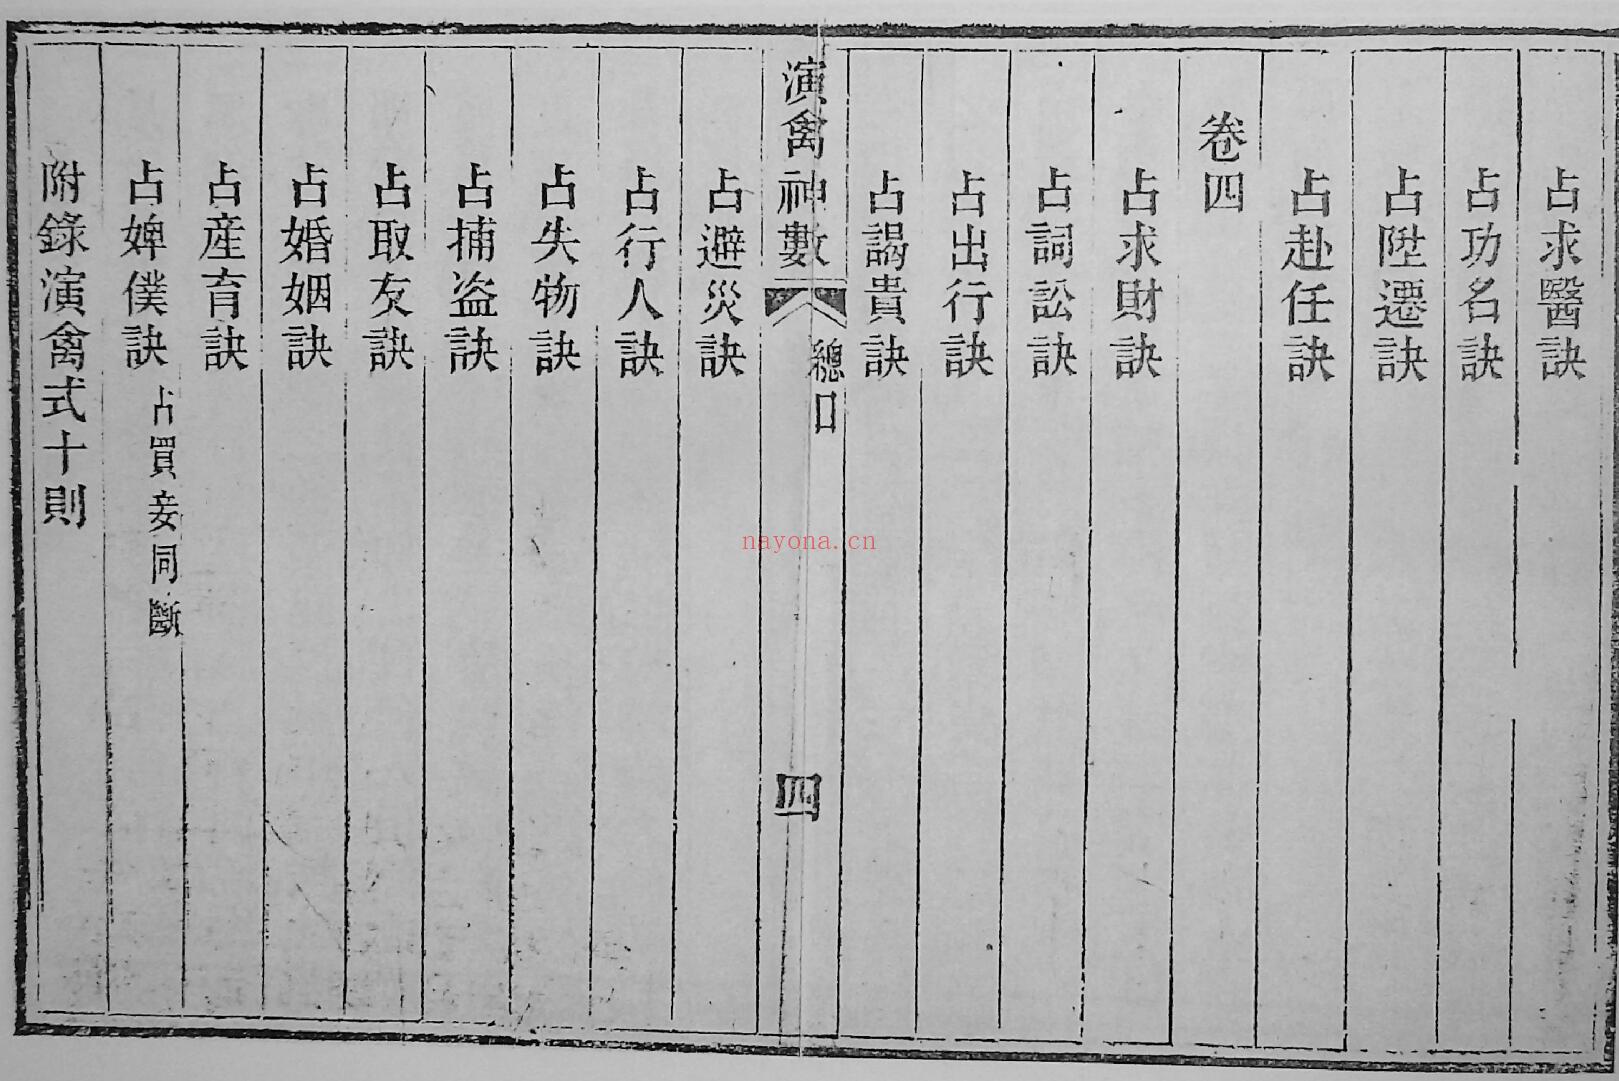 占求醫訣
占功名訣
占陞遷訣
占赴任訣
卷四
占求財訣
占詞訟訣
占出行訣
占謁貴訣
演禽神數
總目
四
占避災訣
占行人訣
占失物訣
占捕盗訣
占取友訣
占婚姻訣
占産育訣
占婢僕訣 占買妾同斷
附錄演禽式十則
nayona.cn